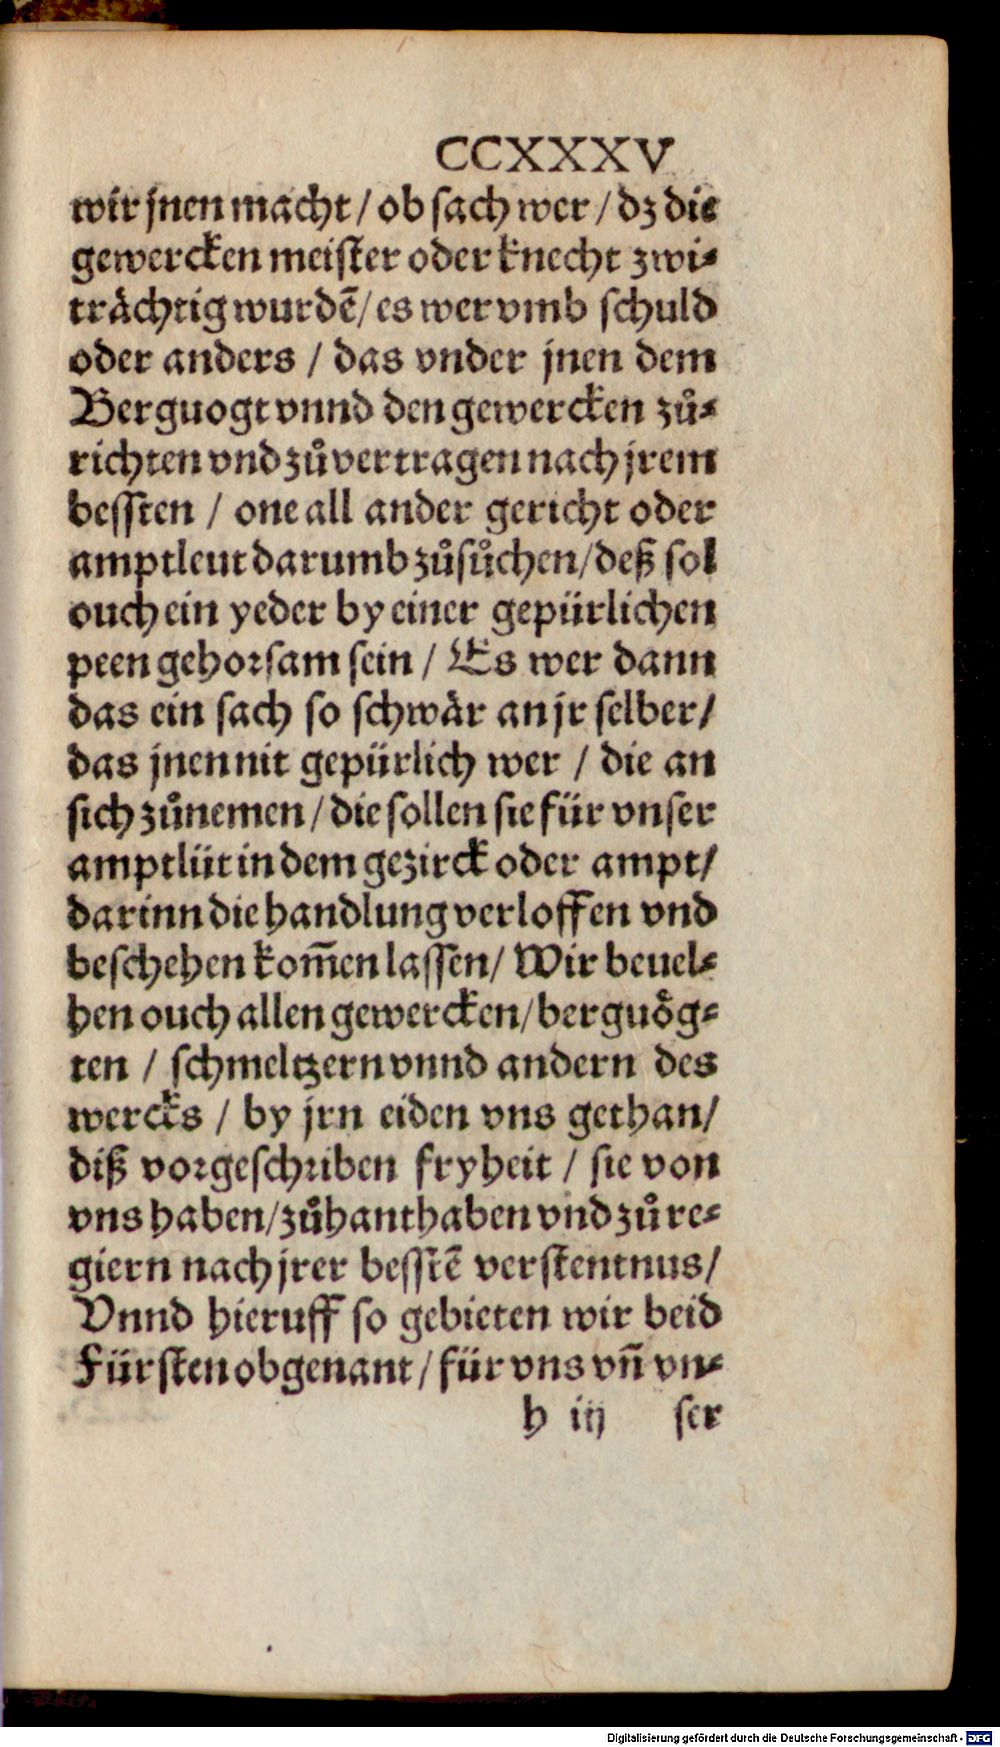 CCXXXV
wir jnen macht / ob sach wer / dz die
gewercken meister oder knecht zwi⸗
trächtig wurdē / es wer vmb schuld
oder anders / das vnder jnen dem
Berguogt vnnd den gewercken zů⸗
richten vnd zůvertragen nach jrem
bessten / one all ander gericht oder
amptleut darumb zůsůchen / deß sol
ouch ein yeder by einer gepürlichen
peen gehorsam sein / Es wer dann
das ein sach so schwär an jr selber /
das jnen nit gepürlich wer / die an
sich zůnemen / die sollen sie für vnser
amptlüt in dem gezirck oder ampt /
darinn die handlung verloffen vnd
beschehen kom̄en lassen / Wir beuel⸗
hen ouch allen gewercken / berguög⸗
ten / schmeltzern vnnd andern des
wercks / by jrn eiden vns gethan /
diß vorgeschriben fryheit / sie von
vns haben / zůhanthaben vnd zů re⸗
giern nach jrer besstē verstentnus /
Vnnd hieruff so gebieten wir beid
Fürsten obgenant / für vns vn̄ vn⸗
h iij ser
Digitalisierung gefördert durch die Deutsche Forschungsgemeinschaft - DFG